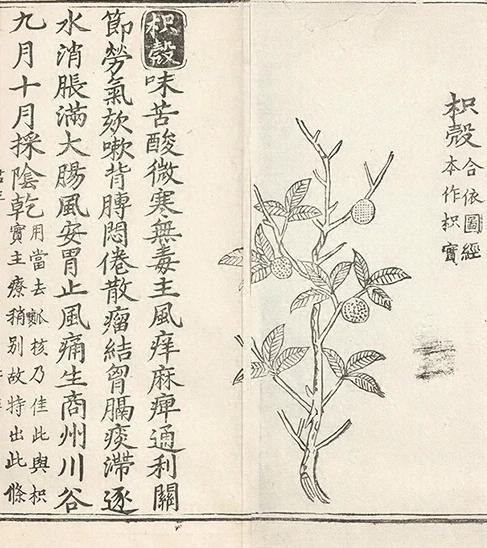 枳殼
合依圖經
本作枳實
枳殼味苦酸微寒無毒主風痒麻痺通利關
節勞氣欬嗽背膊悶倦散瘤結胷膈痰滯逐
水消脹滿大腸風安胃止風痛生商州川谷
九月十月採陰乾
用當去瓤核乃佳此與枳
實主療稍別故特出此條